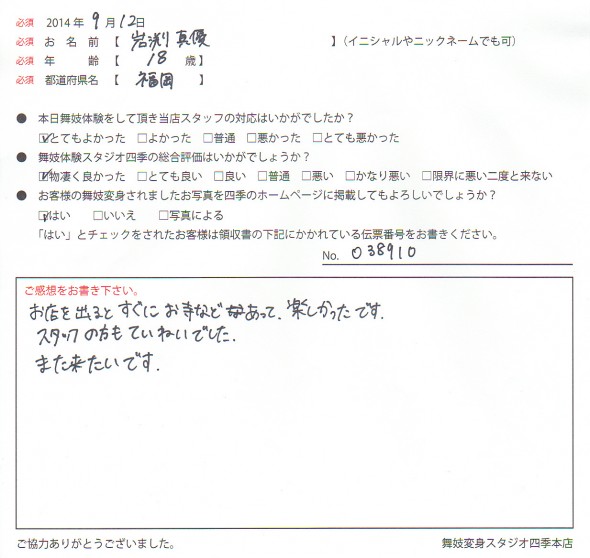 必須 2014年 9月12日
必須 お名前【 岩渕 真優 】(イニシャルやニックネームでも可)
必須 年齢【 18 歳】
必須 都道府県名【 福岡 】
● 本日舞妓体験をして頂き当店スタッフの対応はいかがでしたか?
☑とてもよかった □よかった □普通 □悪かった □とても悪かった
● 舞妓体験スタジオ四季の総合評価はいかがでしょうか?
☑物凄く良かった □とても良い □良い □普通 □悪い □かなり悪い □限界に悪い二度と来ない
● お客様の舞妓変身されましたお写真を四季のホームページに掲載してもよろしいでしょうか?
☑はい □いいえ □写真による
「はい」とチェックをされたお客様は領収書の下記にかかれている伝票番号をお書きください。
No. 038910
ご感想をお書き下さい。
お店を出るとすぐにお寺などあって、楽しかったです.
スタッフの方もていねいでした.
また来たいです.
ご協力ありがとうございました。 舞妓変身スタジオ四季本店